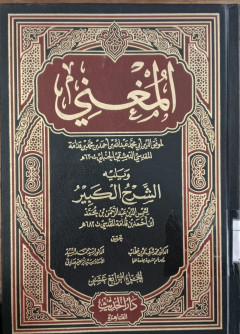 المغني
لموفق الدين أبي محمد عبد الله بن أحمد بن محمد بن قدامة
المقدسي الدمشقي الحنبلي ت ٦٢٠هـ
ويليه
الشرح الكبير
لشمس الدين عبد الرحمن بن محمد
ابن أحمد بن قدامة المقدسي ت ٦٨٢هـ
تحقيق
المجلد الرابع عشر
دار الحديث
القاهرة